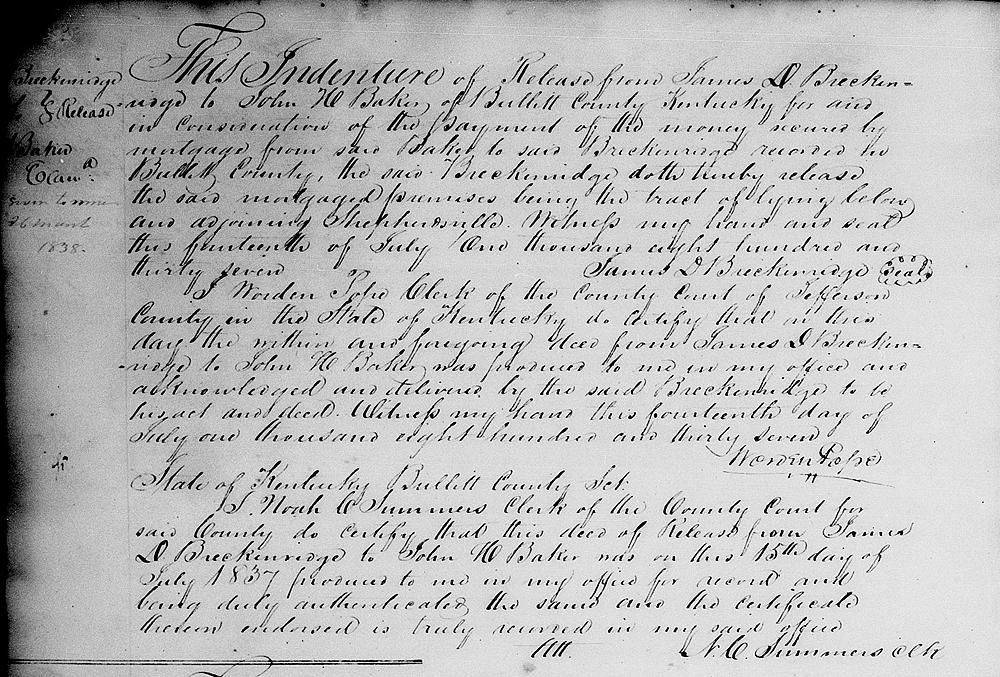 Breckenridge
to } Release
Baker
Exam.d
1838.
This Indenture of Release from James D. Brecken-
ridge to John H Baker of Bullitt County Kentucky for and
in consideration of the payment of the money secured by
mortgage from said Baker to said Breckenridge recorded in
Bullitt County, the said Breckenridge doth hereby release
the said mortgaged premises being the tract of lying below
and adjoining Shepherdsville. Witness my hand and seal
this fourteenth of July One thousand eight hundred and
thirty seven James D Breckenridge Seal
I Worden Pope Clerk of the County Court of Jefferson
County in the State of Kentucky do certify that on this
day the within and foregoing deed from James D Brecken-
-ridge to John H Baker was produced to me in my office and
acknowledged and delivered by the said Breckenridge to be
his act and deed. Witness my hand this fourteenth day of
July one thousand eight hundred and thirty seven
Worden Pope
State of Kentucky Bullitt County Sct.
I Noah C Summers Clerk of the County Court for
said County do certify that this deed of Release from James
D Breckenridge to John H Baker was on this 15th day of
July 1837 produced to me in my office for record and
being duly authenticated the same and the certificate
thereon endorsed is truly recorded in my said office
Att. N. C. Summers clk